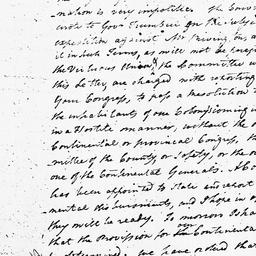 nation is very impolitic. The Gover
wrote to Govr Trumbul on the subje
expedition against Mr
it in such Terms, as will not be
the Virtuous The Committee w
this do they are charged with reporting
Your Congress, to pass a Resolution
the inhabitants of one Colony coming in
in a Hostile manner, without the
Continental or provincial Congress, th
mittee of the County or Safety, or the
one of the Continental Generals. A C
has been appointed to State and report
mental this and I hope in
they will be ready. To morrow I sha
that the Provision for the Continenta
We have ordered tha